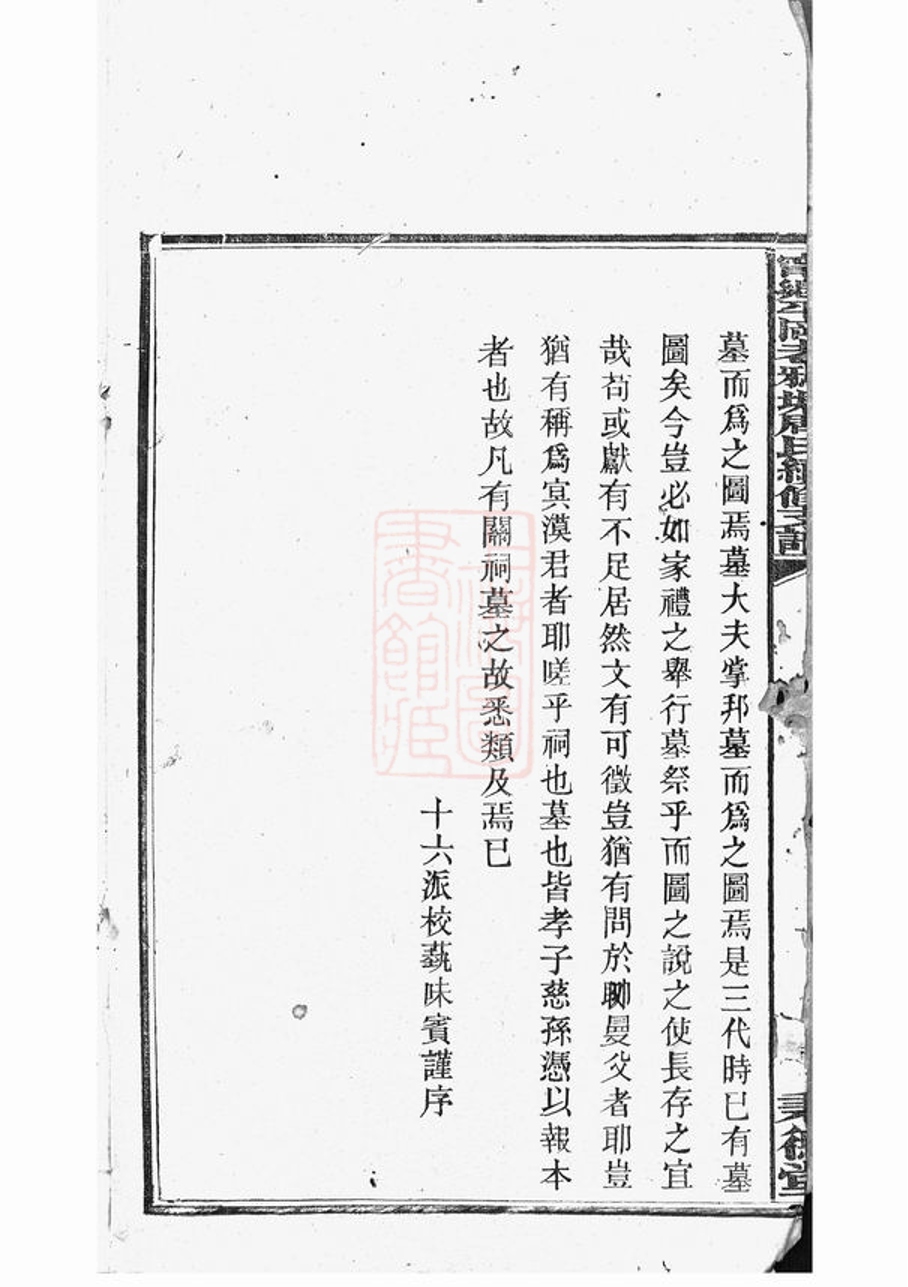 墓而爲之圖焉墓大夫掌邦墓而爲之圖焉是三代時已有墓
圖矣今豈必如家禮之舉行墓祭乎而圖之說之使長存之宜
哉苟或獻有不足居然文有可徵豈猶有問於聊曼父者耶豈
猶有稱爲寘漠君者耶嗟乎祠也墓也皆孝子慈孫憑以報本
者也故凡有關祠墓之故悉類及焉已
十六派校蓺味賓謹序